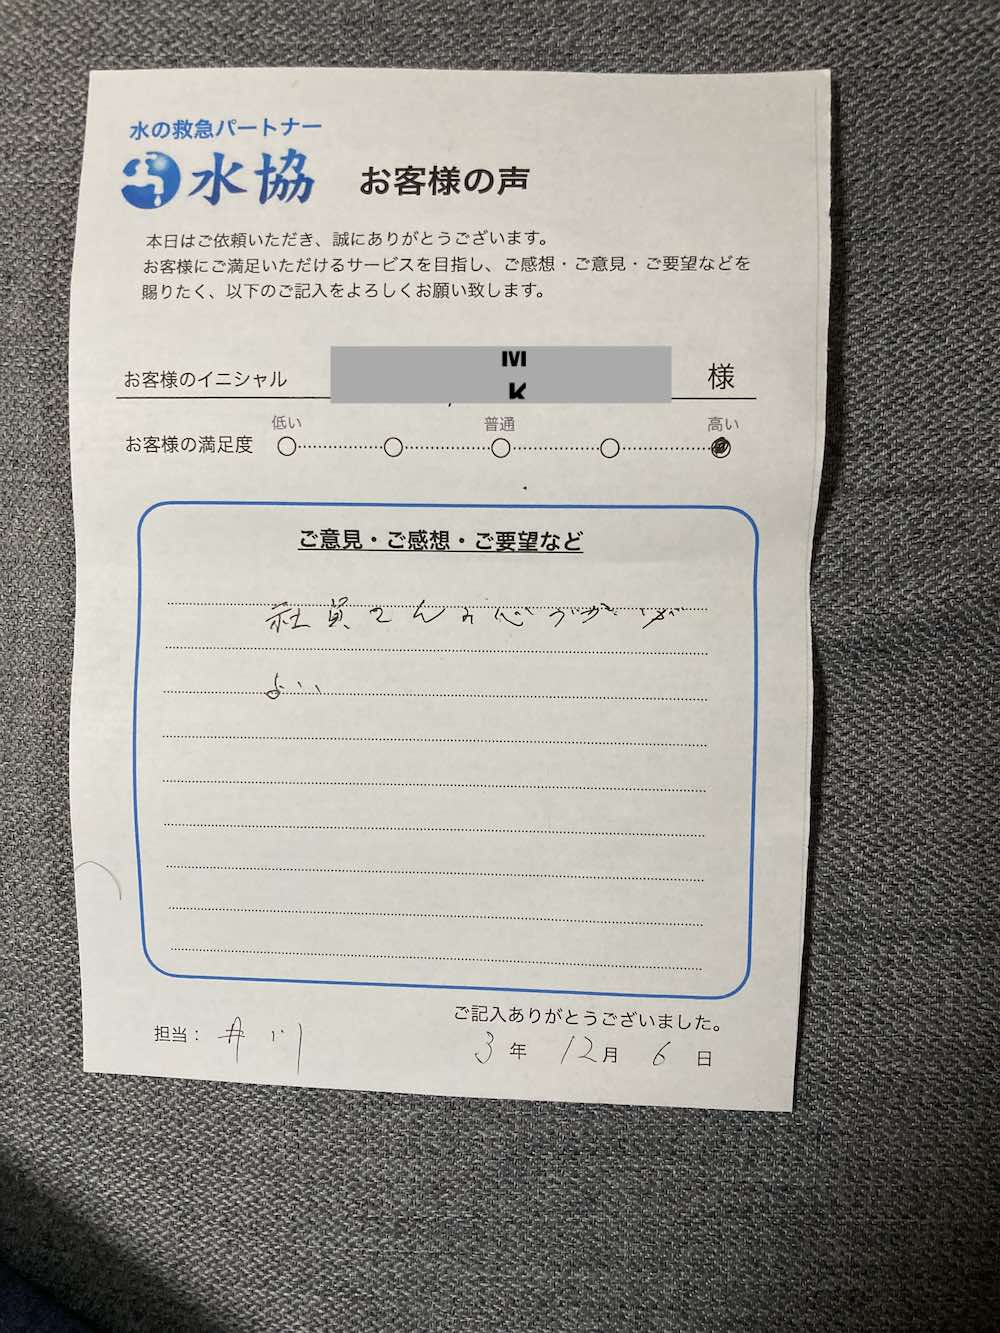 水の救急パートナー
水協 お客様の声
本日はご依頼いただき、誠にありがとうございます。
お客様にご満足いただけるサービスを目指し、ご感想・ご意見・ご要望などを
賜りたく、以下のご記入をよろしくお願い致します。
お客様のイニシャル M K 様
低い 普通 高い
お客様の満足度
ご意見・ご感想・ご要望など
社員さんの心づかいが
よい
ご記入ありがとうございました。
担当： 井川 3年 12月 6日